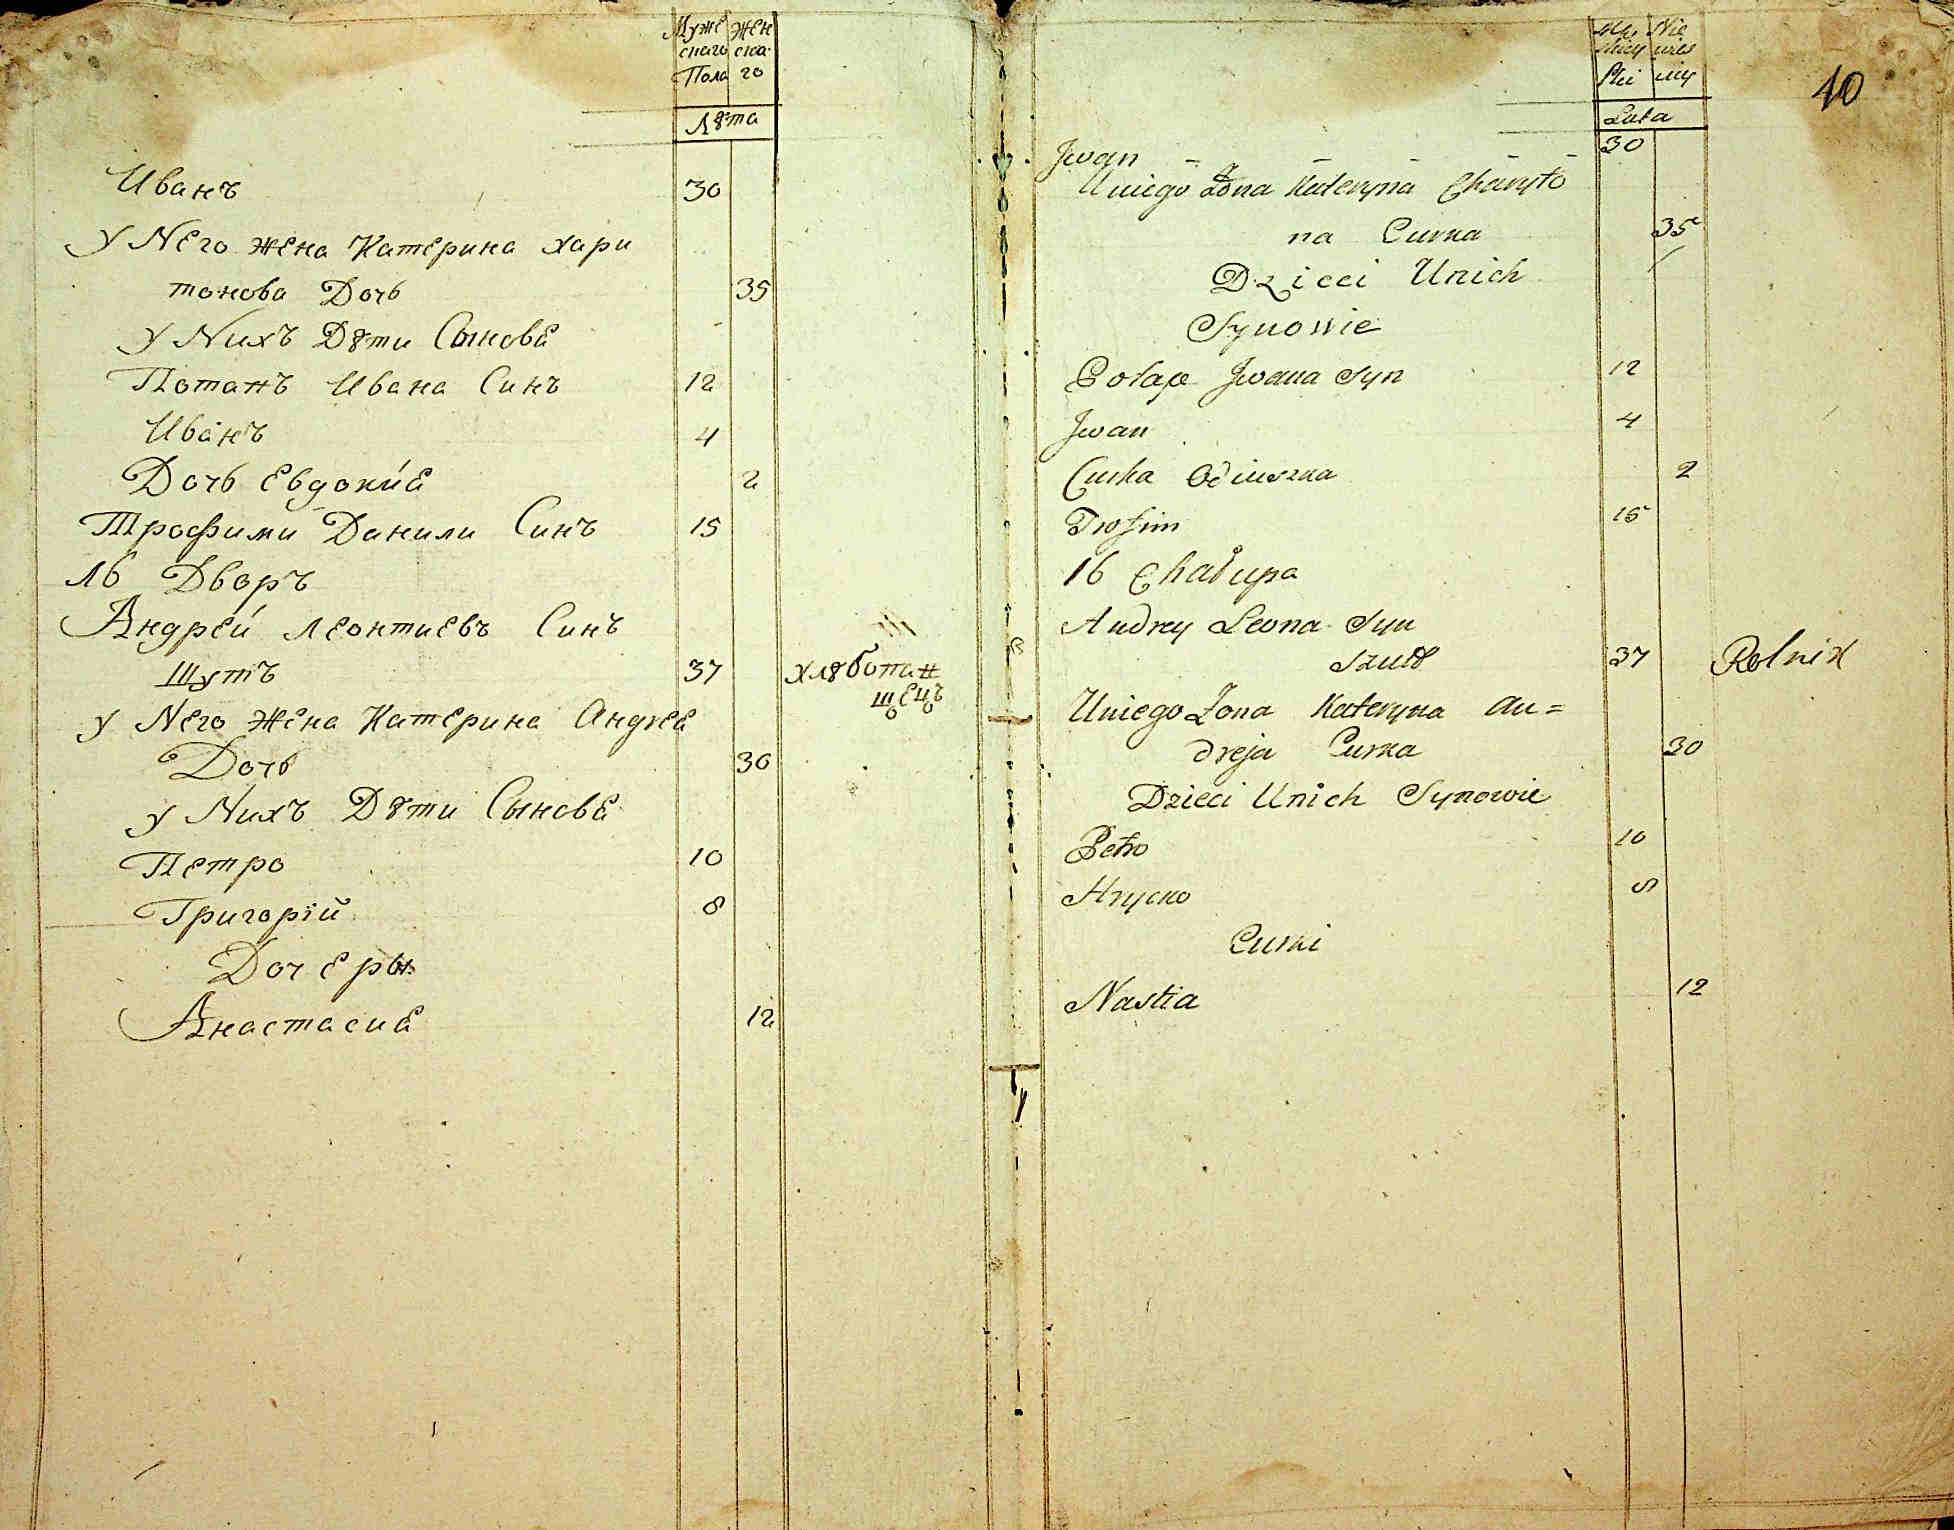 Муже Жен
скаго ска
Пола го
Лѣта
Иванъ 30
У Него жена Катерина хари
тонова Дочь 35
У Нихъ Дѣти Сынове
Потапъ Ивана Синъ 12
Иванъ 4
Дочь Евдокие 2
Трофими Данили Синъ 15
16 Дворъ
Андрей Леонтиевъ Синъ
Шутъ 37 хлѣбопа#
шецъ
у Него жена Катерина Андрее
Дочь 30
у Нихъ Дѣти Сынове
Петро 10
Григорій 8
Дочеры
Анастасие 12
10
Płci
Lata
Jwan 30
Uniego Żona Kateryna Charyto
na Curka 35
Dzieci Unich
Synowie
Potap Jwana Syn 12
Jwan 4
Curka 2
Trofim 15
16 Chałupa
Andrey Leona Syn
Szutt 37 Rolnik
Uniego Żona Kateryna An=
dreja Curka 30
Dzieci Unich Synowie
Petro 10
Hrycko 8
Curki
Nastia 12